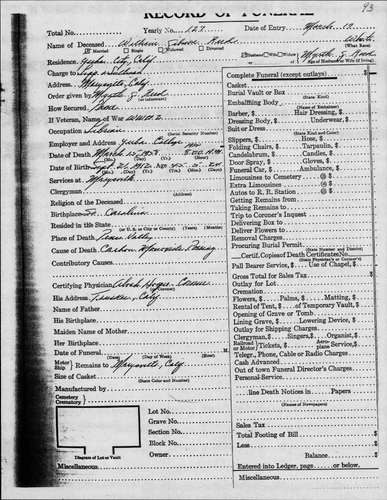 93
RECORD OF FUNERAL
Total No. Yearly No. 127 Date of Entry March 17
Name of Deceased William Reed White
Married Single Widowed Divorced (What Race)
Residence Yuba City, Calif Myrtle G Reed
Age of Husband or Wife (if living)
Charge to
Address Marysville, Calif
Order Given by Myrtle G Reed
(or informant)
How Secured Phone
If Veteran, Name of War WW No 2
Occupation
(Social Security Number)
Employer and Address Yuba College
Date of Death March 15, 1953
(Mo.) (Day) (Year) (Hour)
Date of Birth Sept 21, 1912 Age 40
(Mo.) (Day) (Year) (Years) (Months) (Days)
Services at Marysville
Clergyman
(Address)
Religion of the Deceased
Birthplace So. Carolina
Resided in the State
(or U. S. or City or County) (Years) (Months)
Place of Death
Cause of Death Carbon Monoxide Poisoning
Contributory Causes
Certifying Physician Coroner
His Address Calif
Name of Father
His Birthplace
Maiden Name of Mother
Her Birthplace
Date of Funeral
(Date) (Day of Week) (Hour)
Motor Ship Remains to Marysville, Calif
Size of Casket
(State Color and Number)
Manufactured by
Cemetery
Crematory
Lot No.
Grave No.
Section No.
Block No.
Owner
Diagram of Lot or Vault
Miscellaneous
Complete Funeral (except outlays) $
Casket
Burial Vault or Box
(State Kind)
Embalming Body
(Name of Embalmer)
Barber, $ Hair Dressing, $
Dressing Body, $ Underwear, $
Suit or Dress
(State Kind and Color)
Slippers, $ Hose, $
Folding Chairs, $ Tarpaulin, $
Candelabrum, $ Candles, $
Door Spray, $ Gloves, $
Funeral Car, $ Ambulance, $
Limousines to Cemetery @ $
Extra Limousines @ $
Autos to R. R. Station @ $
Getting Remains from
Taking Remains to
Trip to Coroner's Inquest
Delivering Box to
Deliver Flowers to
Removal Charges
Procuring Burial Permit
(State Number and District)
Certif. Copies of Death Certificates No.
(State Physician's or Coroner's)
Pall Bearer Service, $ Use of Chapel, $
Gross Total for Sales Tax $
Outlay for Lot
Cremation
Flowers, $ Palms, $ Matting, $
Rental of Tent, $ of Temporary Vault, $
Opening of Grave or Tomb
Lining Grave, $ Lowering Device, $
Outlay for Shipping Charges
Clergyman, $ Singers, $ Organist, $
Railroad or Motor Tickets, $ Aeroplane Service, $
Telegr., Phone, Cable or Radio Charges
Cash Advanced
Out of town Funeral Director's Charges
Personal Service
line Death Notices in Papers
(Name of Newspapers)
Sales Tax
Total Footing of Bill $
Less
Balance $
Entered into Ledger, page or below.
Miscellaneous